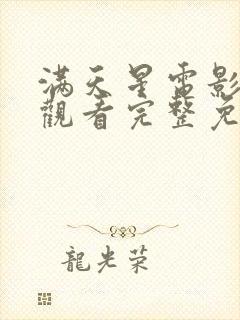 满天星電影
觀看完整免
龍光荣